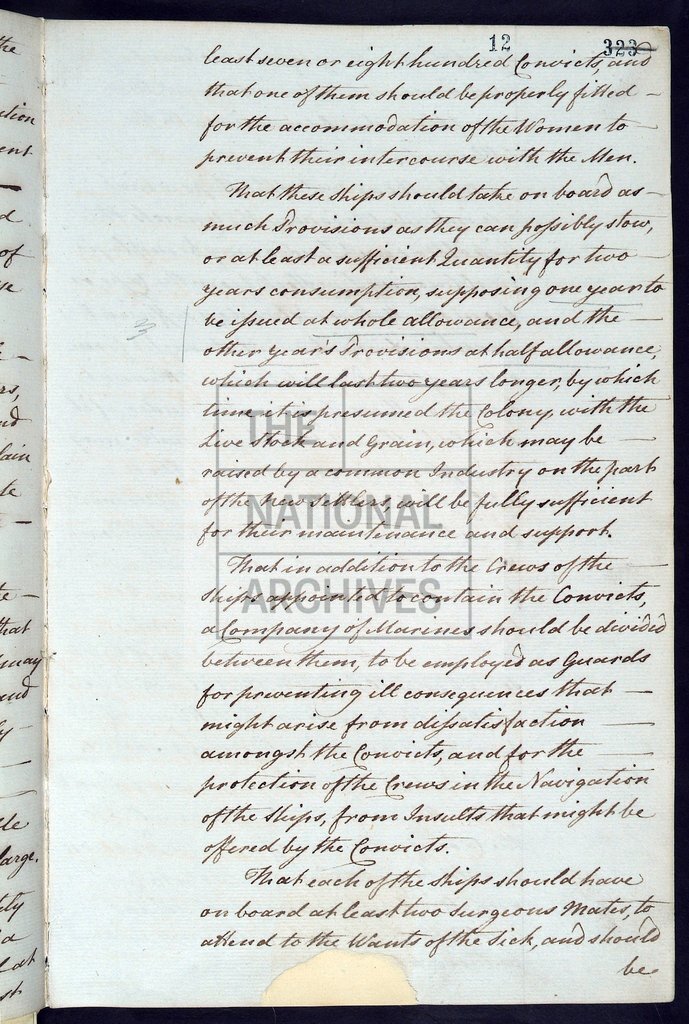 12 323
least seven or eight hundred Convicts, and
that one of them should be properly fitted —
for the accommodation of the Women to —
prevent their intercourse with the Men.
That these Ships should take on board as —
much Provisions as they can possibly stow,
or at least a sufficient Quantity for two —
years consumption, supposing one year to
be issued at whole allowance, and the —
3
other year's Provisions at half allowance,
which will last two years longer, by which
time it is presumed the Colony, with the
Live Stock and Grain, which may be —
raised by a common Industry on the part
of the new Settlers, will be fully sufficient
for their maintenance and support.
That in addition to the Crews of the —
Ships appointed to contain the Convicts,
a Company of Marines should be divided
between them, to be employed as Guards
for preventing ill consequences that —
might arise from dissatisfaction —
amongst the Convicts, and for the —
protection of the Crews in the Navigation
of the Ships, from Insults that might be
offered by the Convicts.
That each of the Ships should have
on board at least two Surgeons Mates, to
attend to the Wants of the Sick, and should
be
THE
NATIONAL
ARCHIVES